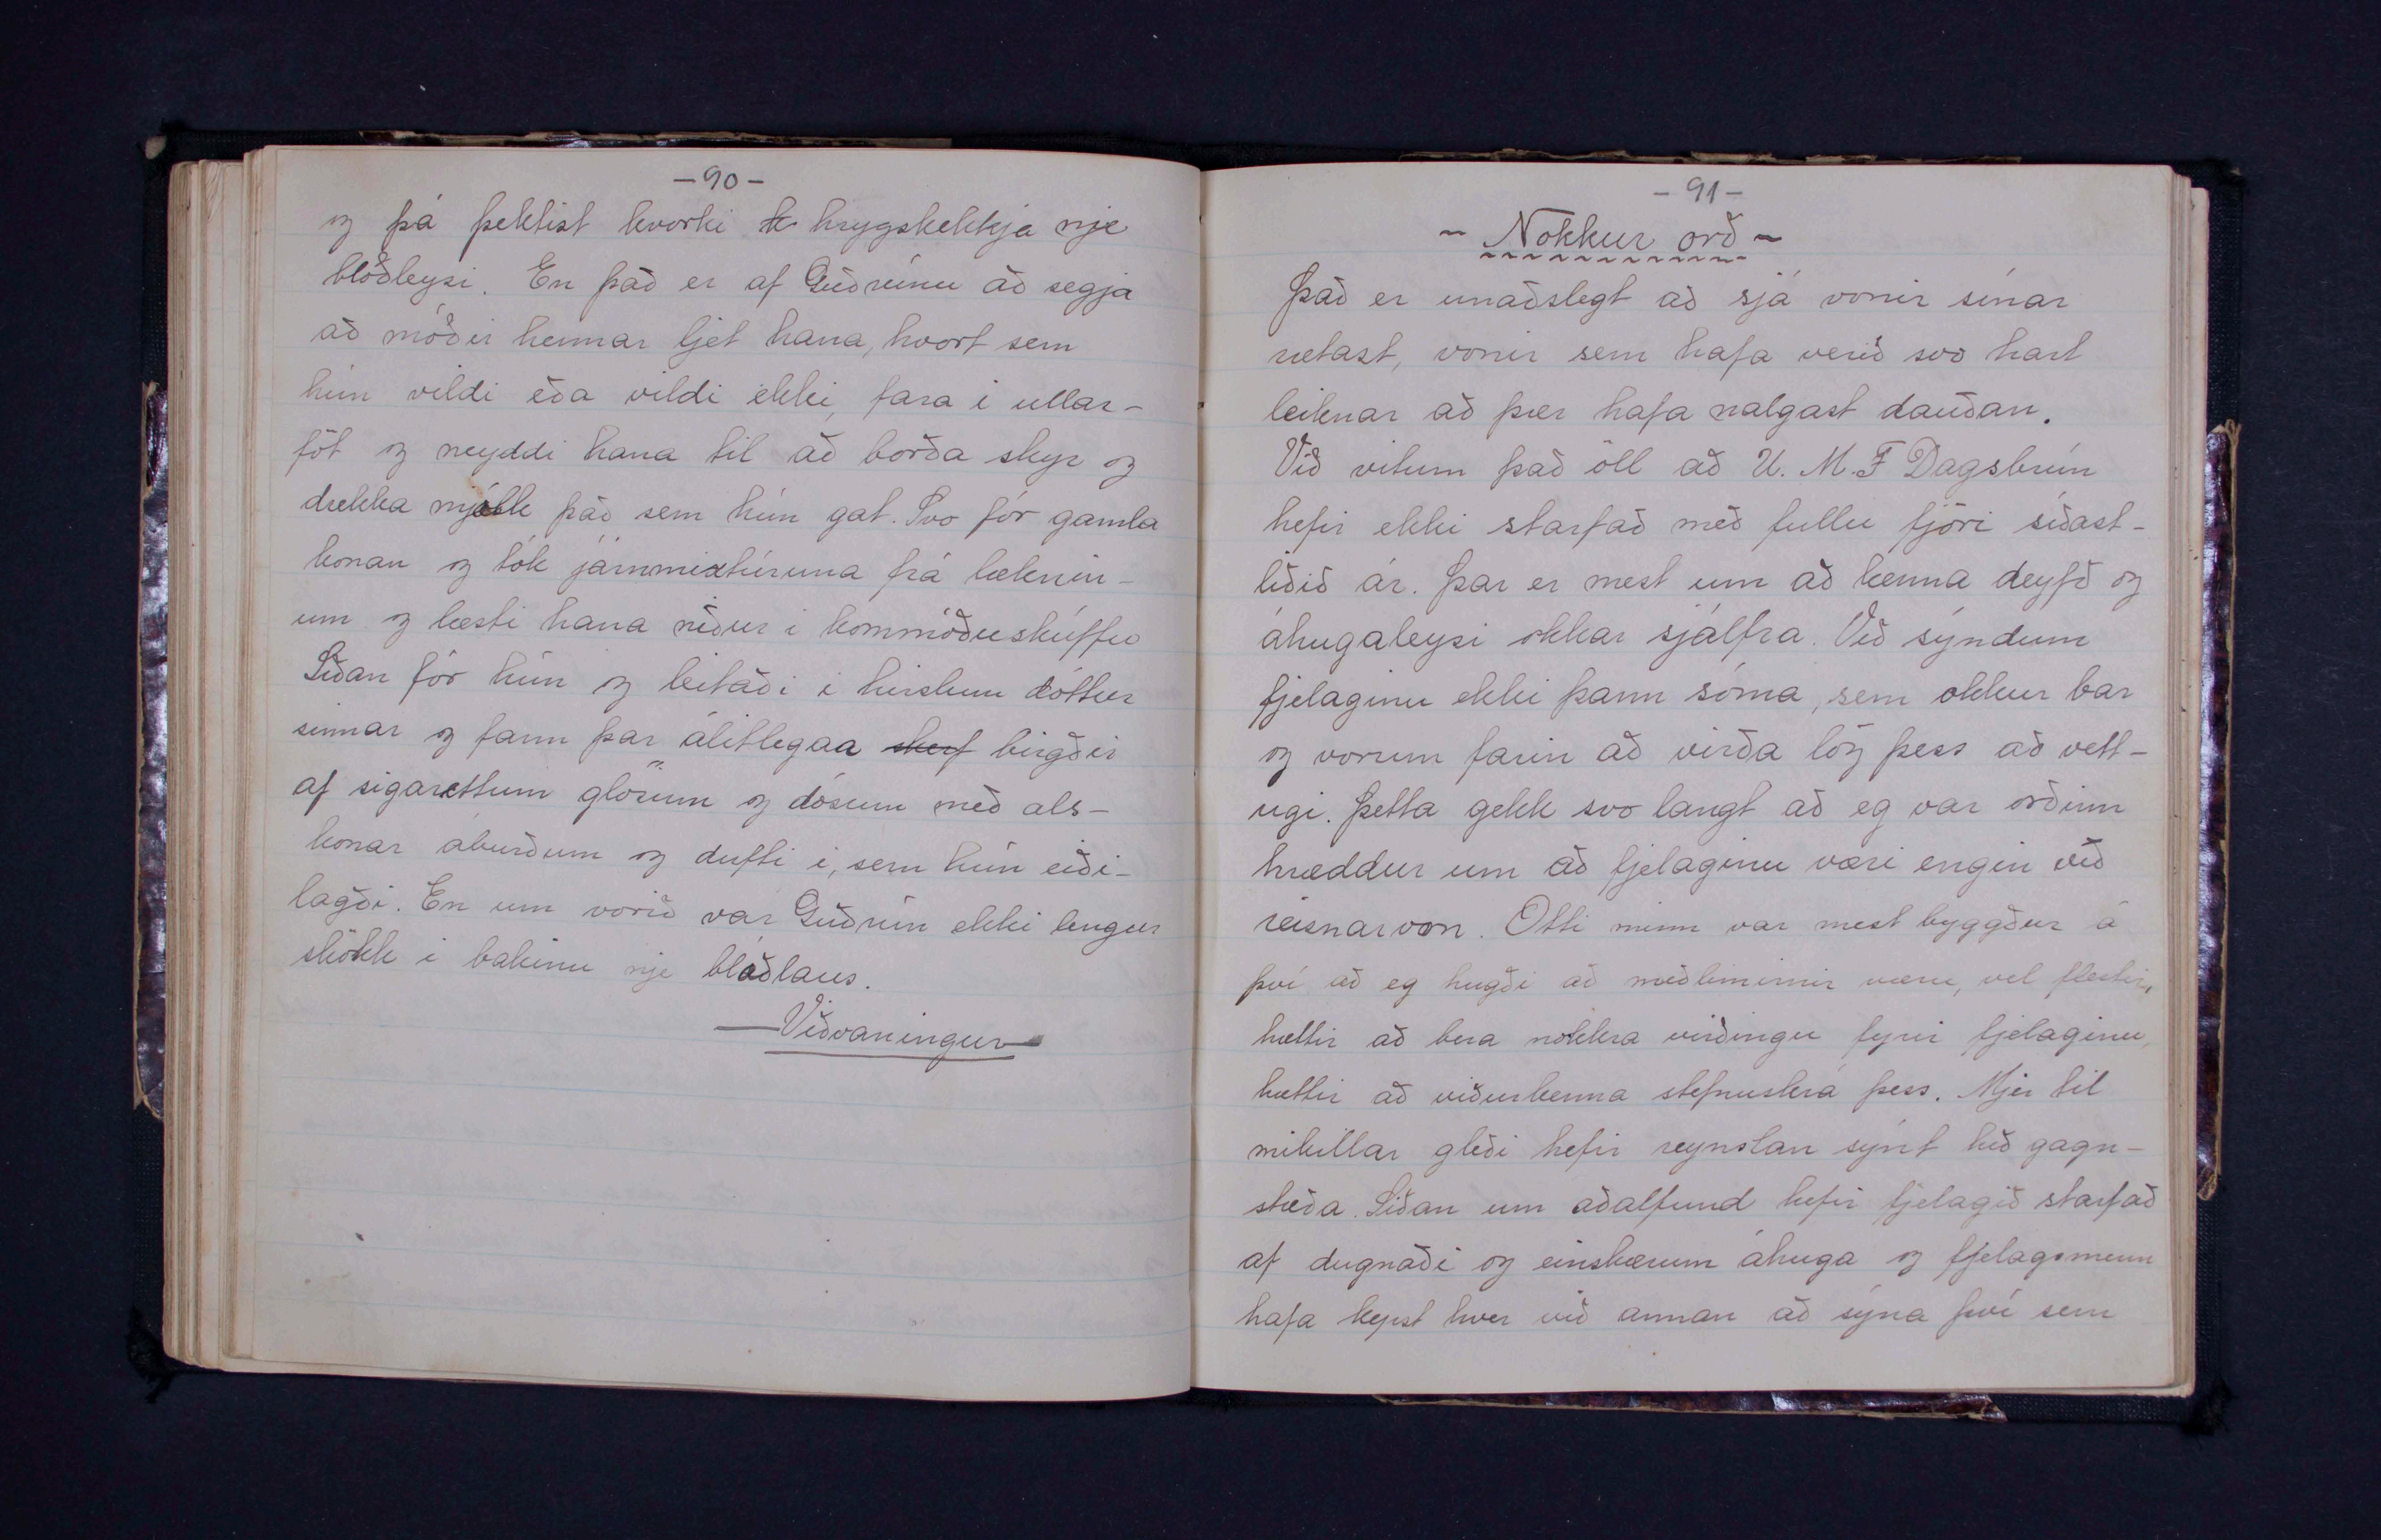 -90-
og þá þektist hvorki hrygskekkja nje
blóðleysi. En það er af Guðrúnu að segja
að móðir hennar ljet hana, hvort sem
hún vildi eða vildi ekki, fara í ullar-
föt og neyddi hana til að borða skyr og
drekka mjólk það sem hún gat. Svo fór gamla
konan og tók járnmixtúruna frá læknin-
um og læsti hana niður í kommóðuskúffu
Síðan fór hún og leitaði í hirslum dóttur
sinnar og fann þar álitlegaa skerf birgðir
af sigarettum glösum og dósum með als-
konar áburðum og dufti í, sem hún eiði-
lagði. En um vorið var Guðrún ekki lengur
skökk í bakinu nje blóðlaus.
—Viðvaningur—
-91-
~ Nokkur orð ~
Það er unaðslegt að sjá vonir sínar
rætast, vonir sem hafa verið svo hart
leiknar að þær hafa nálgast dauðan.
Við vitum það öll að U. M. F Dagsbrún
hefir ekki starfað með fullu fjöri síðast-
liðið ár. Þar er mest um að kenna deyfð og
áhugaleysi okkar sjálfra. Við sýndum
fjelaginu ekki þann sóma, sem okkur bar
og vorum farin að virða lög þess að vett-
ugi. Þetta gekk svo langt að eg var orðinn
hræddur um að fjelaginu væri engin við
reisnarvon. Ótti minn var mest byggður á
því að eg hugði að meðlimirnir væru, vel flestir,
hættir að bera nokkra virðingu fyrir fjelaginu,
hættir að viðurkenna stefnuskrá þess. Mjer til
mikillar gleði hefir reynslan sýnt hið gagn-
stæða. Síðan um aðalfund hefir fjelagið starfað
af dugnaði og einskærum áhuga og fjelagsmenn
hafa kepst hver við annan að sýna því sem